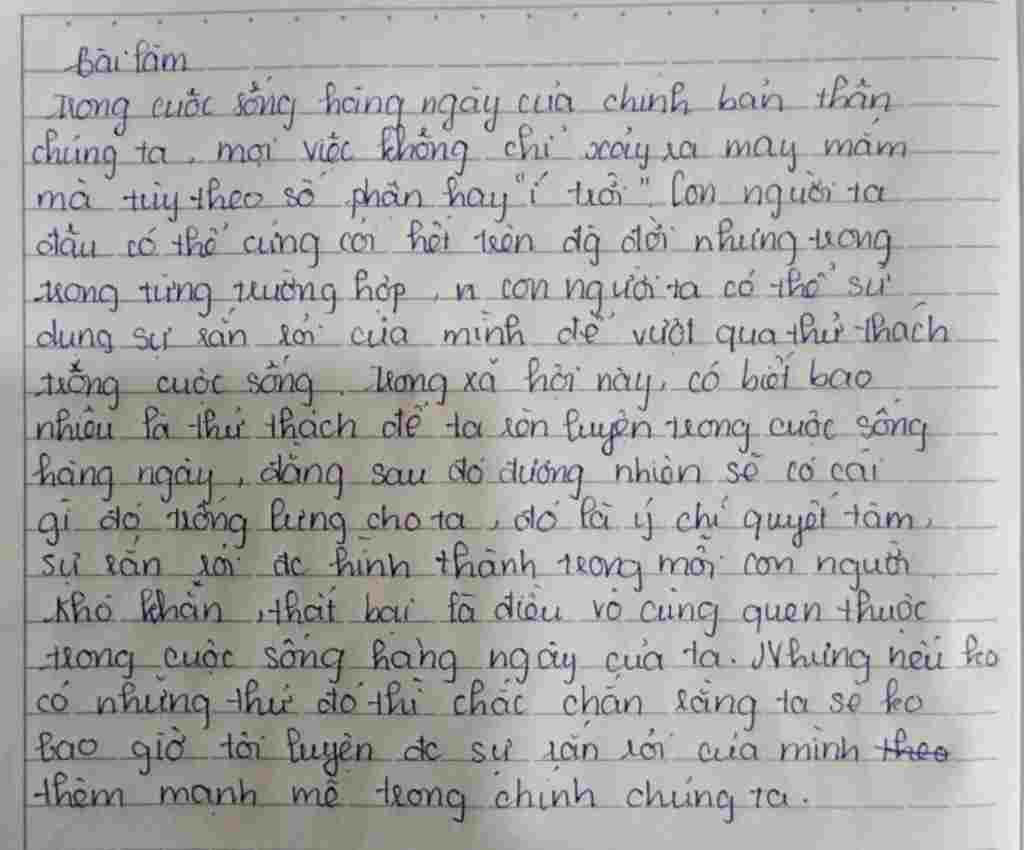 Bài làm
Trong cuộc sống hàng ngày của chính bản thân
chúng ta, mọi việc không chỉ xảy ra may mắm
mà tùy theo số phận hay "í trời". Con người ta
đâu có thể cứng cỏi hơi trên độ đời nhưng trong
trong từng trường hợp, n con người ta có thể sử
dụng sự rắn rỏi của mình để vượt qua thử thách
trong cuộc sống. Trong xã hội này, có biết bao
nhiêu là thử thách để ta rèn luyện trong cuộc sống
hàng ngày, đằng sau đó đương nhiên sẽ có cái
gì đó trống lưng cho ta, đó là ý chí quyết tâm,
sự rắn rỏi đc hình thành trong mỗi con người
Khó khăn, thất bại là điều vô cùng quen thuộc
trong cuộc sống hàng ngày của ta. Nhưng nếu ko
có những thứ đó thì chắc chắn rằng ta sẽ ko
bao giờ tôi luyện đc sự rắn rỏi của mình theo
thêm mạnh mẽ trong chính chúng ta.